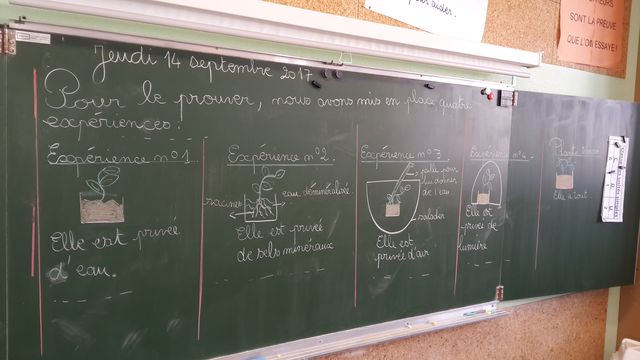 pour aider.
SONT LA PREUVE
QUE L'ON ESSAYE!
Jeudi 14 septembre 2017
Pour le prouver, nous avons mis en place quatre
expériences:
Expérience n°1.
Elle est privée
d'eau.
Expérience n°2.
racines
eau déminéralisée.
Elle est privée
de sels minéraux
Expérience n°3
paille pour
lui donner
de l'eau.
saladier
Elle est
privée d'air
Expérience n°4.
Elle est
privée de
lumière
Plante témoin
Elle a tout.